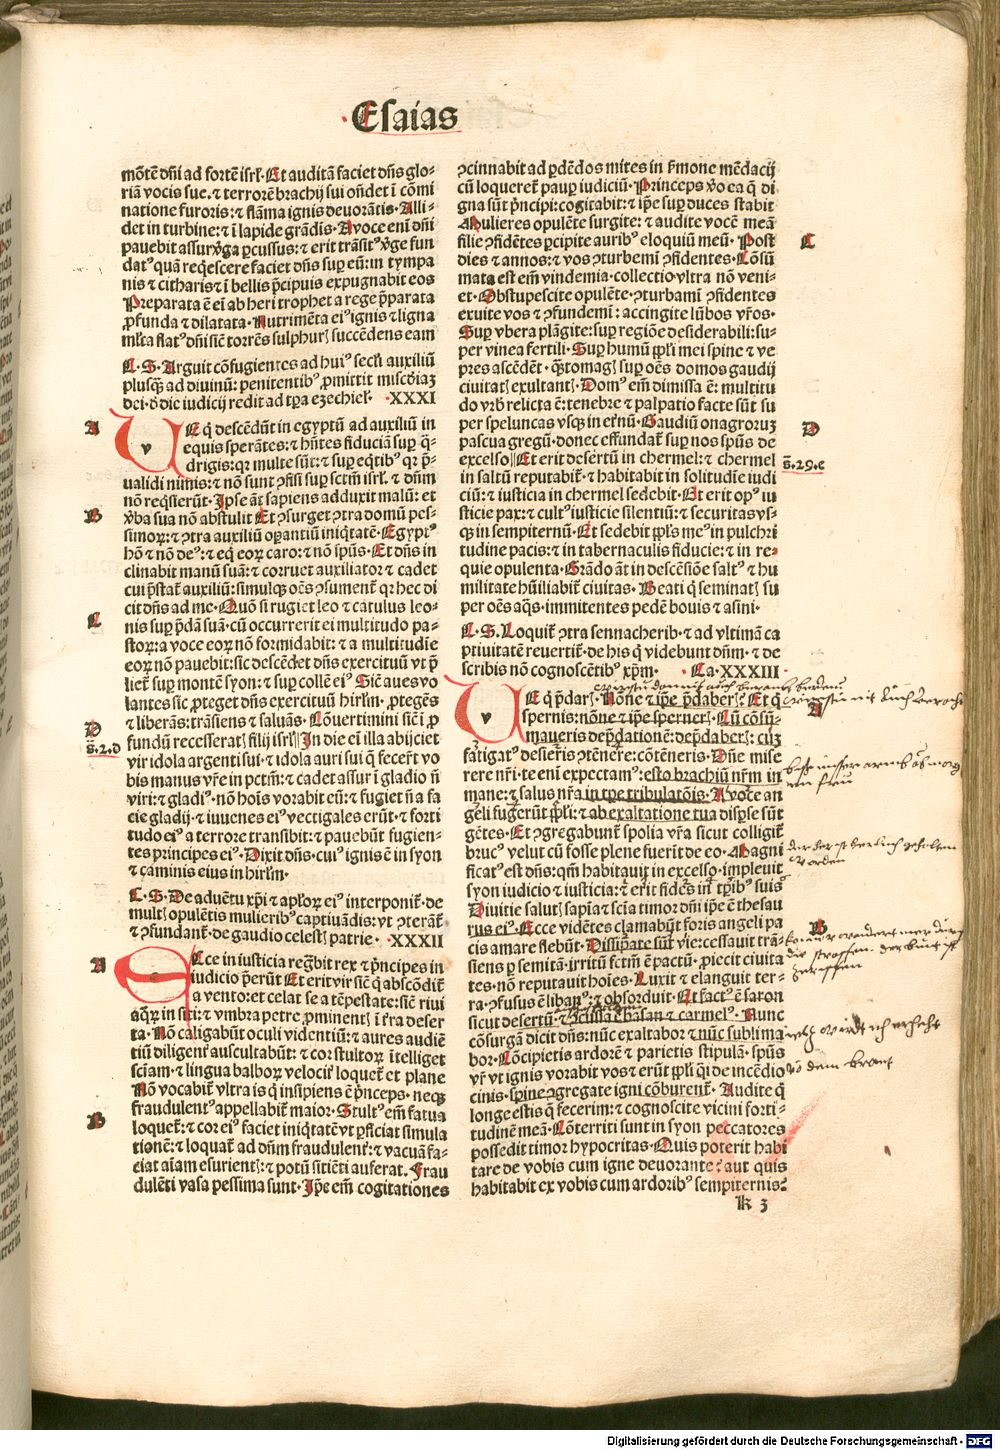 Esaias
mōtē dn̄i ad fortē isrl̄. Et auditā faciet dn̄s glo-
riā vocis sue. ⁊ terrorē brachij sui on̄det ī cōmi
natione furoris: ⁊ flāma ignis deuorātis. Alli-
det in turbine: ⁊ ī lapide grādis. A voce enī dn̄i
pauebit assur v̓ga ꝑcussus: ⁊ erit trāsitꝰ v̓ge fun
datꝰ quā reqͥescere faciet dn̄s suꝑ eū: in tympa
nis ⁊ citharis ⁊ ī bellis p̄cipuis expugnabit eos
Preparata ē ei ab heri trophet a rege p̄parata
ꝓfunda ⁊ dilatata. Nutrimēta eiꝰ ignis ⁊ ligna
ml̄ta flatꝰ dn̄i sic̄ torrēs sulphurꝭ succēdens eam
C. S. Arguit cōfugientes ad huiꝰ sec̄li auxiliū
plusqꝫ ad diuinū: penitentibꝰ ꝓmittit mīscdiaꝫ
dei. ⁊ d̓ die iudicij redit ad tp̄a ezechielꝭ. XXXI
A
v E qͥ descēdūt in egyptū ad auxiliū in
equis sperātes: ⁊ hn̄tes fiduciā suꝑ q̄-
drigis: qꝛ multe sūt: ⁊ suꝑ eqͥtibꝰ qꝛ p̄-
ualidi nimis: ⁊ nō sunt ꝯfisi suꝑ sctm̄ isrl̄. ⁊ dn̄m
nō reqͥsierūt. Ipse āt sapiens adduxit malū: et
B
v̓ba sua nō abstulit Et ꝯsurget ꝯtra domū pes-
simoꝝ: ⁊ ꝯtra auxiliū oꝑantiū iniqͥtatē. Egyptꝰ
hō ⁊ nō deꝰ: ⁊ eqͥ eoꝝ caro: ⁊ nō sp̄us. Et dn̄s in
clinabit manū suā: ⁊ corruet auxiliator ⁊ cadet
cui p̄stat̄ auxiliū: simulqꝫ oēs ꝯsument̄ qꝛ hec di
cit dn̄s ad me. Quō si rugiet leo ⁊ catulus leo-
C
nis suꝑ p̄dā suā: cū occurrerit ei multitudo pa-
stoꝝ: a voce eoꝝ nō formidabit: ⁊ a multitudīe
eoꝝ nō pauebit: sic descēdet dn̄s exercituū vt p̄
liet̄ suꝑ montē syon: ⁊ suꝑ collē eiꝰ Sic̄ aues vo
lantes sic ꝓteget dn̄s exercituū hirlm̄. ꝓtegēs
⁊ liberās: trāsiens ⁊ saluās. Cōuertimini sic̄ ī ꝓ
D
s̄. 2. d
fundū recesseratꝭ filij isrl̄. In die eī illa abijciet
vir idola argenti sui. ⁊ idola auri sui q̄ fecerūt vo
bis manus vr̄e in pctm̄: ⁊ cadet assur ī gladio n̄
viri: ⁊ gladiꝰ. nō hoīs vorabit eū: ⁊ fugiet n̄ a fa
cie gladij. ⁊ iuuenes eiꝰ vectigales erūt. ⁊ forti
tudo eiꝰ a terrore transibit: ⁊ pauebūt fugien-
tes principes eiꝰ. Dixit dn̄s. cuiꝰ ignis ē in syon
⁊ caminis eius in hirlm̄.
C. S. De aduētu xp̄i ⁊ apl̄oꝝ eiꝰ interponit̄. de
multꝭ opulētis mulieribꝰ captiuādis: vt ꝯterāt̄
⁊ ꝯfundant̄. de gaudio celestꝭ patrie. XXXII
A
E Cce in iusticia regbit rex ⁊ p̄ncipes in
iudicio p̄erūt Et erit vir sic̄ qͥ abscōdit̄
a vento: et celat se a tēpestate: sic̄ riui
aqͣꝝ in siti: ⁊ vmbra petre ꝓminentꝭ ī t̄ra deser
ta. Nō caligabūt oculi videntiū: ⁊ aures audiē
tiū diligent̄ auscultabūt: ⁊ cor stultoꝝ ītelliget
sc̄iam: ⁊ lingua balboꝝ velocit̄ loquet̄ et plane
Nō vocabit̄ vltra is qͥ insipiens ē p̄nceps. neqꝫ
fraudulentꝰ appellabit̄ maior. Stultꝰ em̄ fatua
B
loquet̄: ⁊ cor eiꝰ faciet iniqͥtatē vt ꝑficiat simula
tionē: ⁊ loquat̄ ad dn̄m fraudulent̄: ⁊ vacuā fa-
ciat aīam esurientꝭ: ⁊ potū sitiēti auferat. Frau
dulēti vasa pessima sunt. Ip̄e em̄ cogitationes
ꝯcinnabit ad ꝑdēdos mites in s̓mone mēdacij
cū loqueret̄ pauꝑ iudiciū. Princeps v̓o ea q̄ di
gna sūt p̄ncipi: cogitabit: ⁊ ip̄e suꝑ duces stabit
Mulieres opulēte surgite: ⁊ audite vocē meā
C
filie ꝯfidētes ꝑcipite auribꝰ eloquiū meū. Post
dies ⁊ annos: ⁊ vos ꝯturbemī ꝯfidentes. Cōsū
mata est em̄ vindemia. collectio vltra nō veni-
et. Obstupescite opulēte. ꝯturbamī ꝯfidentes
exuite vos ⁊ ꝯfundemī: accingite lūbos vr̄os.
Suꝑ vbera plāgite: suꝑ regiōe desiderabili: su-
per vinea fertili. Suꝑ humū pp̄li mei spine ⁊ ve
pres ascēdēt. qͣtomagꝭ suꝑ oēs domos gaudij
ciuitatꝭ exultantꝭ. Domꝰ em̄ dimissa ē: multitu
do vrbꝭ relicta ē: tenebre ⁊ palpatio facte sūt su
D
per speluncas vsqꝫ in et̓nū. Gaudiū onagroruꝫ
pascua gregū. donec effundat̄ suꝑ nos sp̄us de
s̄. 29. e
excelso || Et erit desertū in chermel: ⁊ chermel
in saltū reputabit̄. ⁊ habitabit in solitudīe iudi
ciū: ⁊ iusticia in chermel sedebit. Et erit opꝰ iu
sticie pax: ⁊ cultꝰ iusticie silentiū: ⁊ securitas vs-
qꝫ in sempiternū. Et sedebit pp̄ls meꝰ in pulchri
tudine pacis: ⁊ in tabernaculis fiducie: ⁊ in re-
quie opulenta. Grādo āt in descēsiōe saltꝰ ⁊ hu
militate hūiliabit̄ ciuitas. Beati qͥ seminatꝭ su
per oēs aqͣs. immitentes pedē bouis ⁊ asini.
C. S. Loquit̄ ꝯtra sennacherib. ⁊ ad vltimā ca
ptiuitatē reuertit̄. de his qͥ videbunt dn̄m. ⁊ de
scribis nō cognoscētibꝰ xp̄m. Ca. XXXIII.
A
v E qͥ p̄darꝭ. Nōne ⁊ ip̄e p̄daberꝭ? Et qͥ
spernis: nōne ⁊ ip̄e sperneris. Cū cōsū-
maueris dep̄dationē: dep̄daberꝭ: cūꝫ
fatigatꝰ desieris ꝯtēnere: cōtēneris. Dn̄e mise
rere nr̄i. te enī expectamꝰ: esto brachiū nr̄m in
mane: ⁊ salus nr̄a in tpe tribulatōis. A voce an
geli fugerūt pp̄li: ⁊ ab exaltatione tua disp̄se sūt
gētes. Et ꝯgregabunt̄ spolia vr̄a sicut colligit̄
brucꝰ velut cū fosse plene fuerīt de eo. Magni
ficatꝰ est dn̄s: qm̄ habitauit in excelso. impleuit
syon iudicio ⁊ iusticia: ⁊ erit fides in tp̄ibꝰ suis
Diuitie salutꝭ sapīa ⁊ sc̄ia timor dn̄i ip̄e ē thesau
B
rus eiꝰ. Ecce vidētes clamabūt foris angeli pa
cis amare flebūt. Dissipate sūt vie: cessauit trā-
siens ꝑ semitā. irritū fctm̄ ē pactū. ꝓiecit ciuita
tes. nō reputauit hoīes. Luxit ⁊ elanguit ter-
ra. ꝯfusus ē libanꝰ: ⁊ obsorduit. Et factꝰ ē saron
sicut desertū. ⁊ ꝯcussa ē basan ⁊ carmelꝰ. Nunc
cōsurgā dicit dn̄s: nūc exaltabor ⁊ nūc sublima
bor. Cōcipietis ardorē ⁊ parietis stipulā. sp̄us
vr̄ vt ignis vorabit vos ⁊ erūt pp̄li qͣi de incēdio
cinis. spine ꝯgregate igni cōburent̄. Audite qͥ
longe estis q̄ fecerim: ⁊ cognoscite vicini forti-
tudinē meā. Cōterriti sunt in syon peccatores
possedit timor hypocritas. Quis poterit habi
tare de vobis cum igne deuorante? aut quis
habitabit ex vobis cum ardoribꝰ sempiternis?
k 3
Digitalisierung gefördert durch die Deutsche Forschungsgemeinschaft - DFG